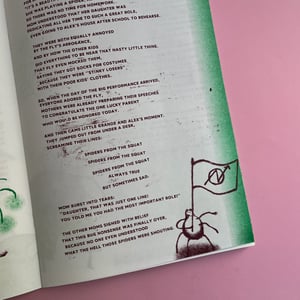 SO THERE WAS NO TIME FOR HOMEWORK.
MOM UNDERSTOOD THAT HER DAUGHTER WAS
DEDICATING ALL HER TIME TO SUCH A GREAT ROLE,
EVEN GOING TO ALEX'S HOUSE AFTER SCHOOL TO REHEARSE.
THEY WERE BOTH EQUALLY ANNOYED
AT THE FLY'S ARROGANCE,
AND BY HOW THE OTHER KIDS
DID EVERYTHING TO BE NEAR THAT NASTY LITTLE THING.
THAT FLY EVEN MOCKED THEM,
SAYING THEY GOT SOCKS FOR COSTUMES
BECAUSE THEY WERE "STINKY LOSERS"
WITH THEIR POOR KIDS' CLOTHES.
SO, WHEN THE DAY OF THE BIG PERFORMANCE ARRIVED,
EVERYONE ADORED THE FLY.
MOTHERS WERE ALREADY PREPARING THEIR SPEECHES
TO CONGRATULATE THE ONE LUCKY PARENT
WHO WOULD BE HONORED TODAY.
AND THEN CAME LITTLE AND ALEX'S MOMENT.
THEY JUMPED OUT FROM UNDER A DESK,
SCREAMING THEIR LINES:
SPIDERS FROM THE SQUAT
SPIDERS FROM THE SQUAT
SPIDERS FROM THE SQUAT
ALWAYS TRUE
BUT SOMETIMES SAD.
MOM BURST INTO TEARS:
"DAUGHTER, THAT WAS JUST ONE LINE!
YOU TOLD ME YOU HAD THE MOST IMPORTANT ROLE!"
THE OTHER MOMS SIGHED WITH RELIEF
THAT THIS BUG NONSENSE WAS FINALLY OVER,
BECAUSE NO ONE EVEN UNDERSTOOD
WHAT THE HELL THOSE SPIDERS WERE SHOUTING